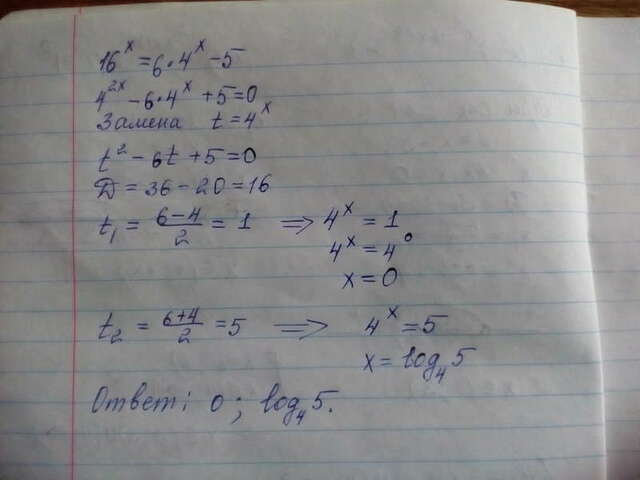 16^x = 6·4^x − 5
4^2x − 6·4^x + 5 = 0
Замена t = 4^x
t^2 − 6t + 5 = 0
D = 36 − 20 = 16
t₁ = (6−4)/2 = 1 ⇒ 4^x = 1
4^x = 4^0
x = 0
t₂ = (6+4)/2 = 5 ⇒ 4^x = 5
x = log₄5
Ответ: 0; log₄5.